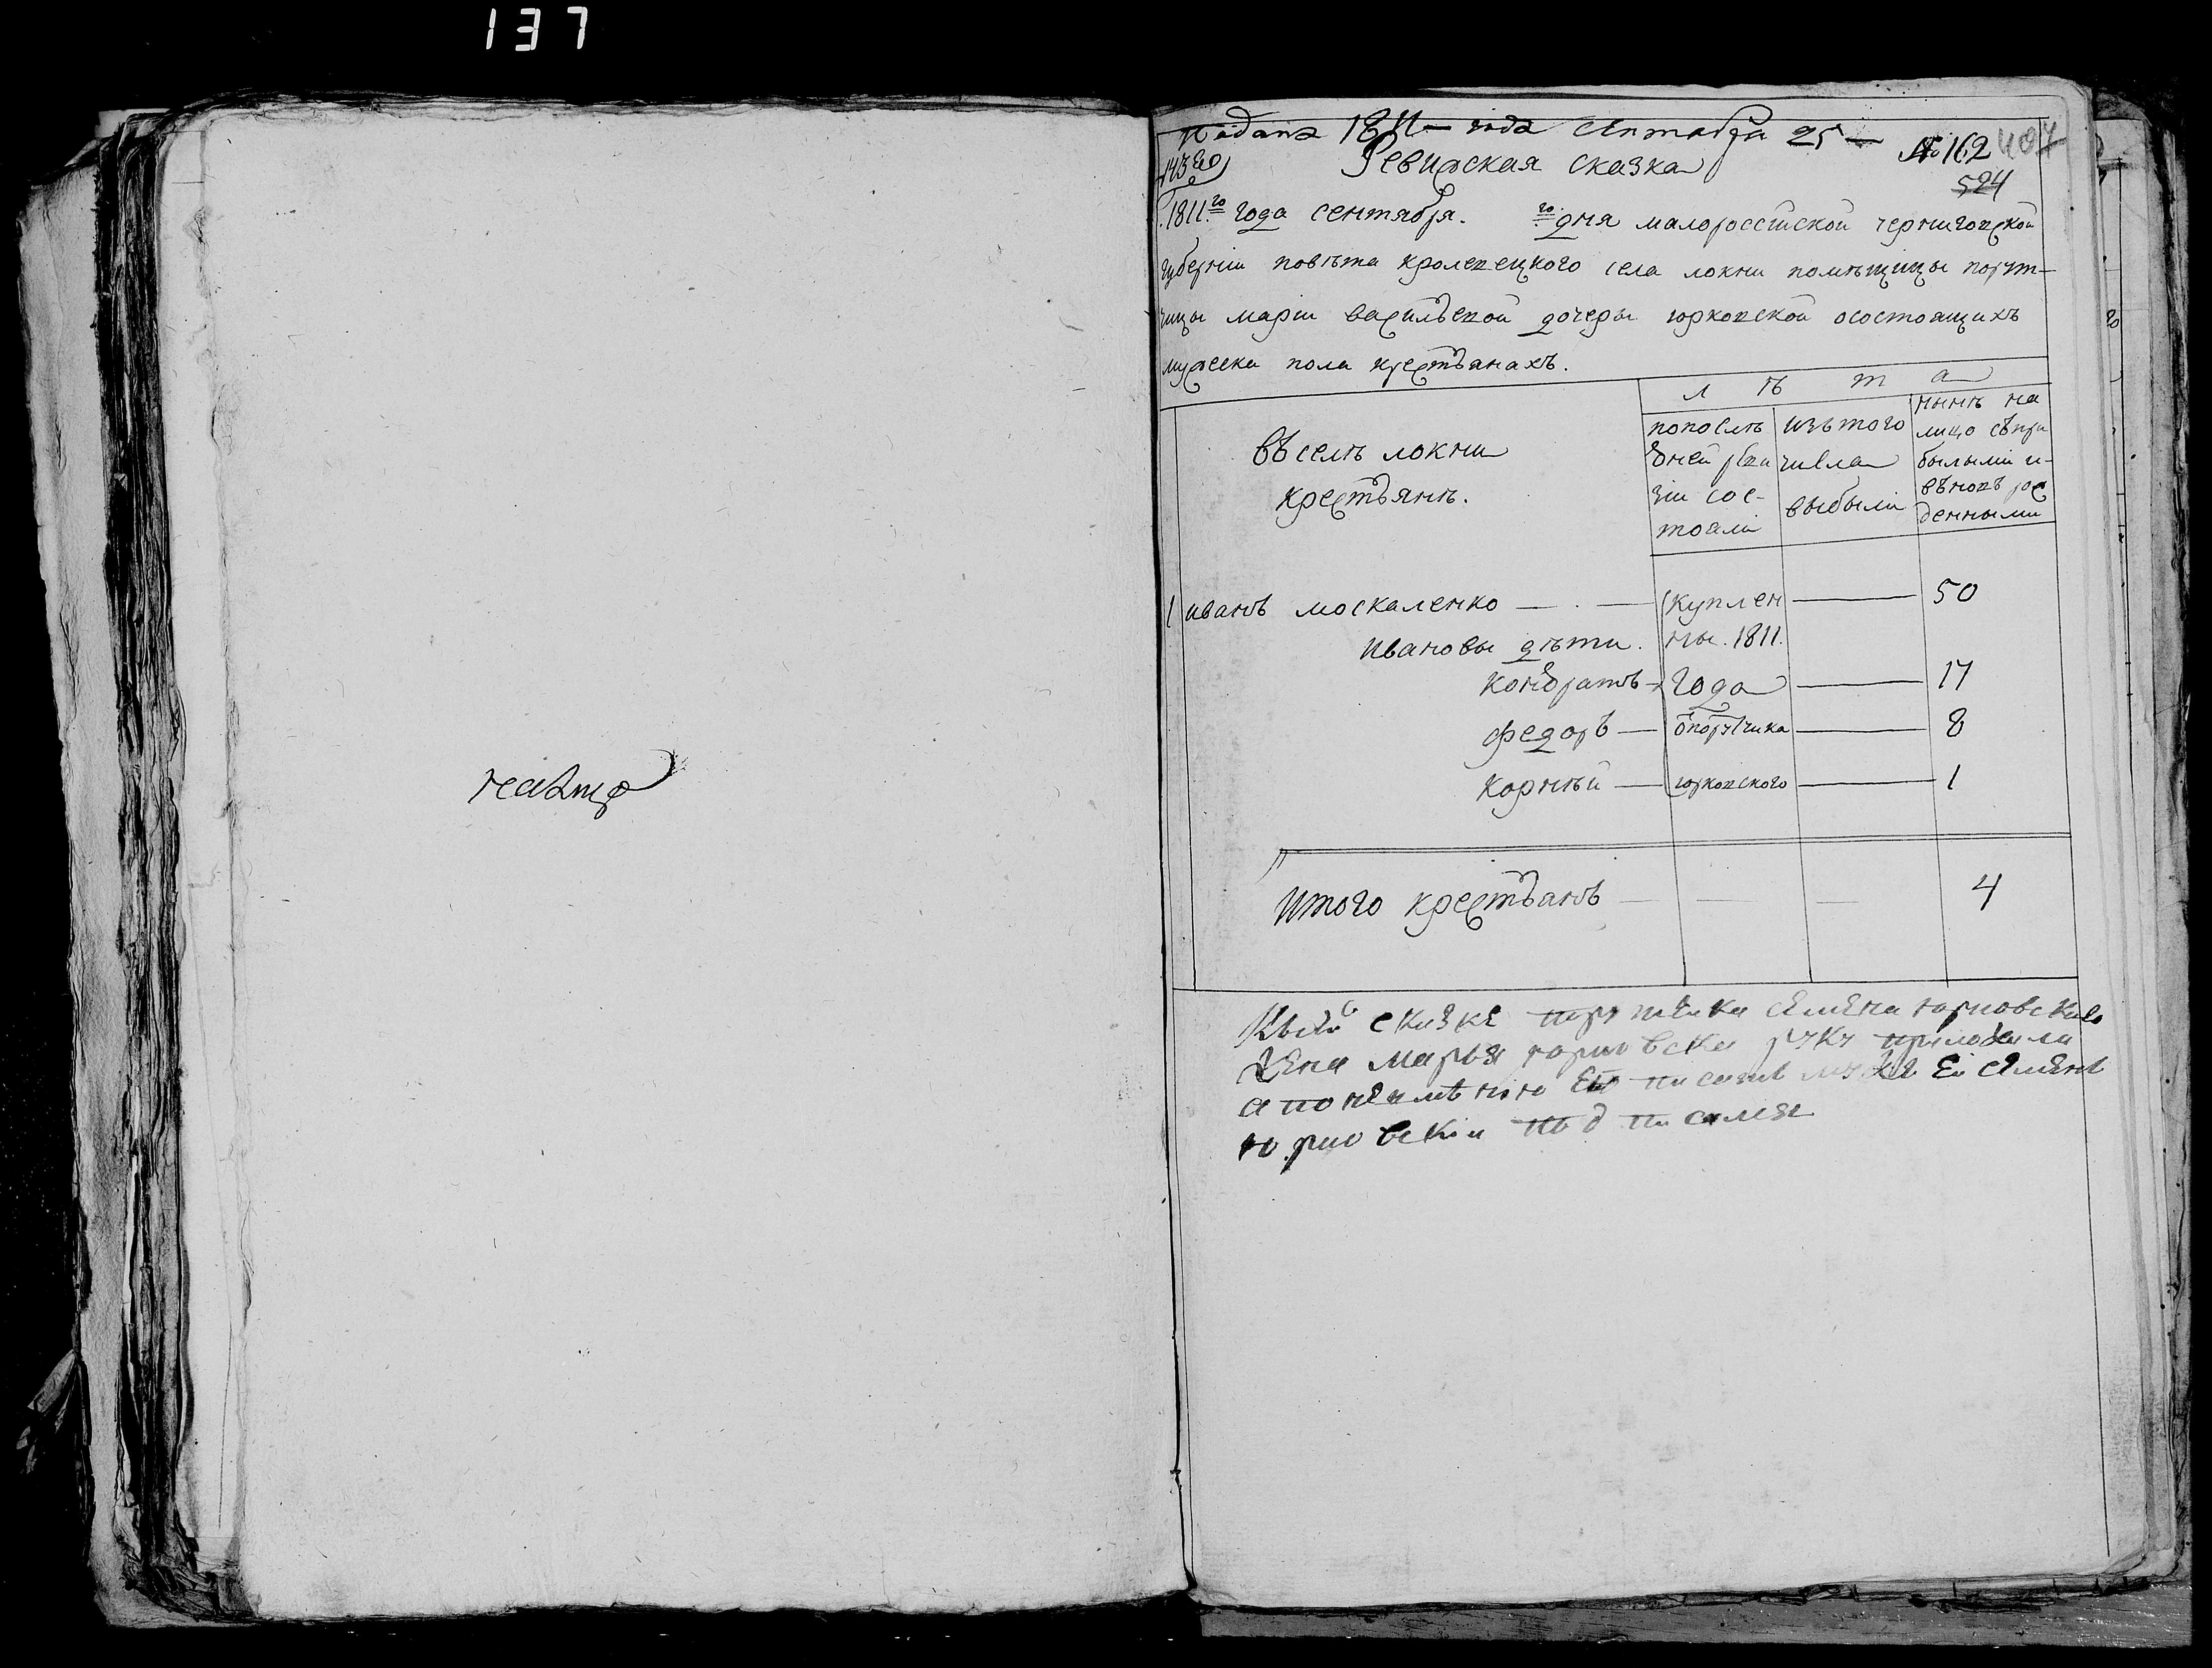 137
Подана 1811 года Септабра 25
№ 162 407
Ревижская сказка
524
1811го года сентября. го дня малороссїиской черниговской
губернїи повѣта кролевецкого села локни помѣщицы порут-
чицы марїи васильевой дочеры юрковской осостоящихъ
мужеска пола крестьянахъ.
лѣта
въ селѣ локни
крестьянъ.
попослѣ
дней реви
зїи сос-
тояли
изътого
числа
выбыли
нынѣ на
лицо съпри
былыми и-
вновъ рож
денными
1 иванъ москаленко куплен 50
ивановы дѣти. ны. 1811.
кондратъ года 17
федоръ ѿпорутчика 8
корнѣй юрковского 1
Итого крестьянъ 4
Ксей скизке порутчика Семена юрковскаго
Жена Марья юрковска руку приложила
а понеимѣнию писать мужъ Ей Семенъ
юрковскїи подписался